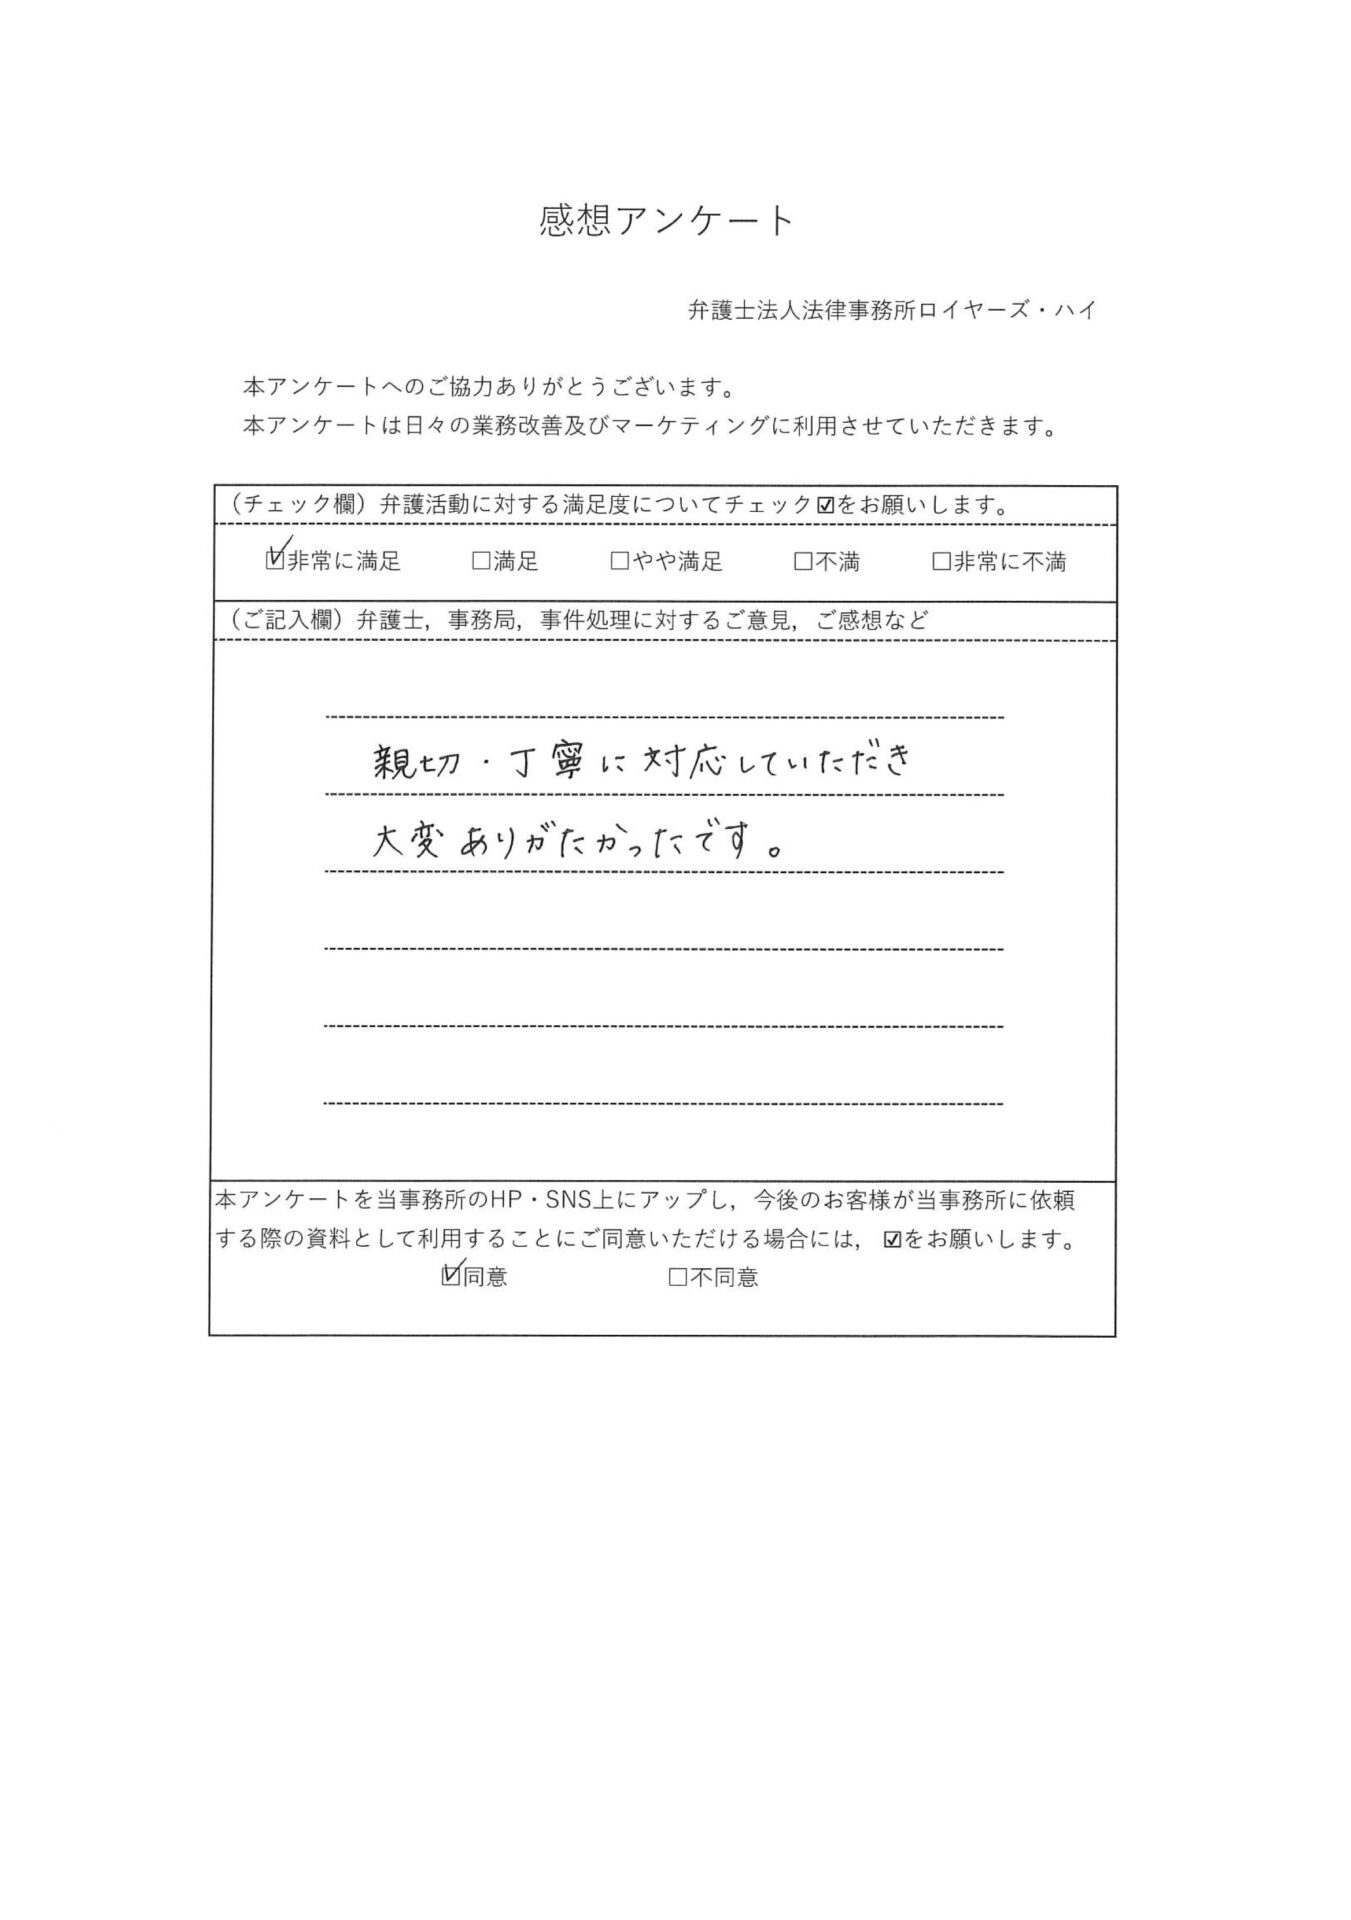 感想アンケート
弁護士法人法律事務所ロイヤーズ・ハイ
本アンケートへのご協力ありがとうございます。
本アンケートは日々の業務改善及びマーケティングに利用させていただきます。
（チェック欄）弁護活動に対する満足度についてチェック☑をお願いします。
☑非常に満足 □満足 □やや満足 □不満 □非常に不満
（ご記入欄）弁護士，事務局，事件処理に対するご意見，ご感想など
親切・丁寧に対応していただき
大変ありがたかったです。
本アンケートを当事務所のHP・SNS上にアップし，今後のお客様が当事務所に依頼
する際の資料として利用することにご同意いただける場合には，☑をお願いします。
☑同意 □不同意